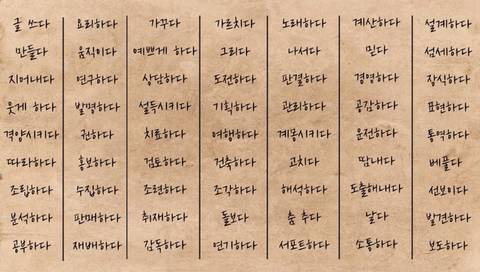 글 쓰다 요리하다 가꾸다 가르치다 노래하다 계산하다 설계하다
만들다 움직이다 예쁘게 하다 그리다 나서다 믿다 섬세하다
지어내다 연구하다 상담하다 도전하다 판결하다 경영하다 장식하다
웃게 하다 발명하다 설득시키다 기획하다 관리하다 공감하다 표현하다
격양시키다 권하다 치료하다 여행하다 계몽시키다 운전하다 통역하다
따라하다 홍보하다 검토하다 건축하다 고치다 땀내다 베풀다
조립하다 수집하다 조언하다 조각하다 해석하다 도출해내다 선보이다
분석하다 판매하다 취재하다 돌보다 춤 추다 날다 발견하다
공부하다 재배하다 감독하다 연기하다 서포트하다 소통하다 보도하다